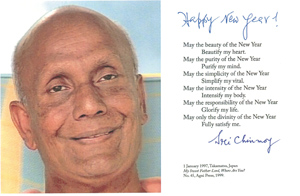 Happy New Year!
May the beauty of the New Year
Beautify my heart.
May the purity of the New Year
Purify my mind.
May the simplicity of the New Year
Simplify my vital.
May the intensity of the New Year
Intensify my body.
May the responsibility of the New Year
Glorify my life.
May only the divinity of the New Year
Fully satisfy me.
Sri Chinmoy
1 January 1997, Takamatsu, Japan
My Sweet Father-Lord, Where Are You?
No. 41, Agni Press, 1999.